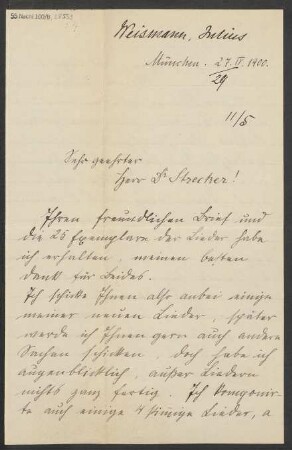 Weismann, Julius
München. 27. IV. 1900.
29
11/5
Sehr geehrter
Herr Dr Strecker!
Ihren freundlichen Brief und
die 25 Exemplare der Lieder habe
ich erhalten, meinen besten
Dank für Beides.
Ich schicke Ihnen also anbei einige
meiner neuen Lieder, später
werde ich Ihnen gern auch andere
Sachen schicken, doch habe ich
augenblicklich, außer Liedern
nichts ganz fertig. Ich komponir-
te auch einige 4 stimmige Lieder, a